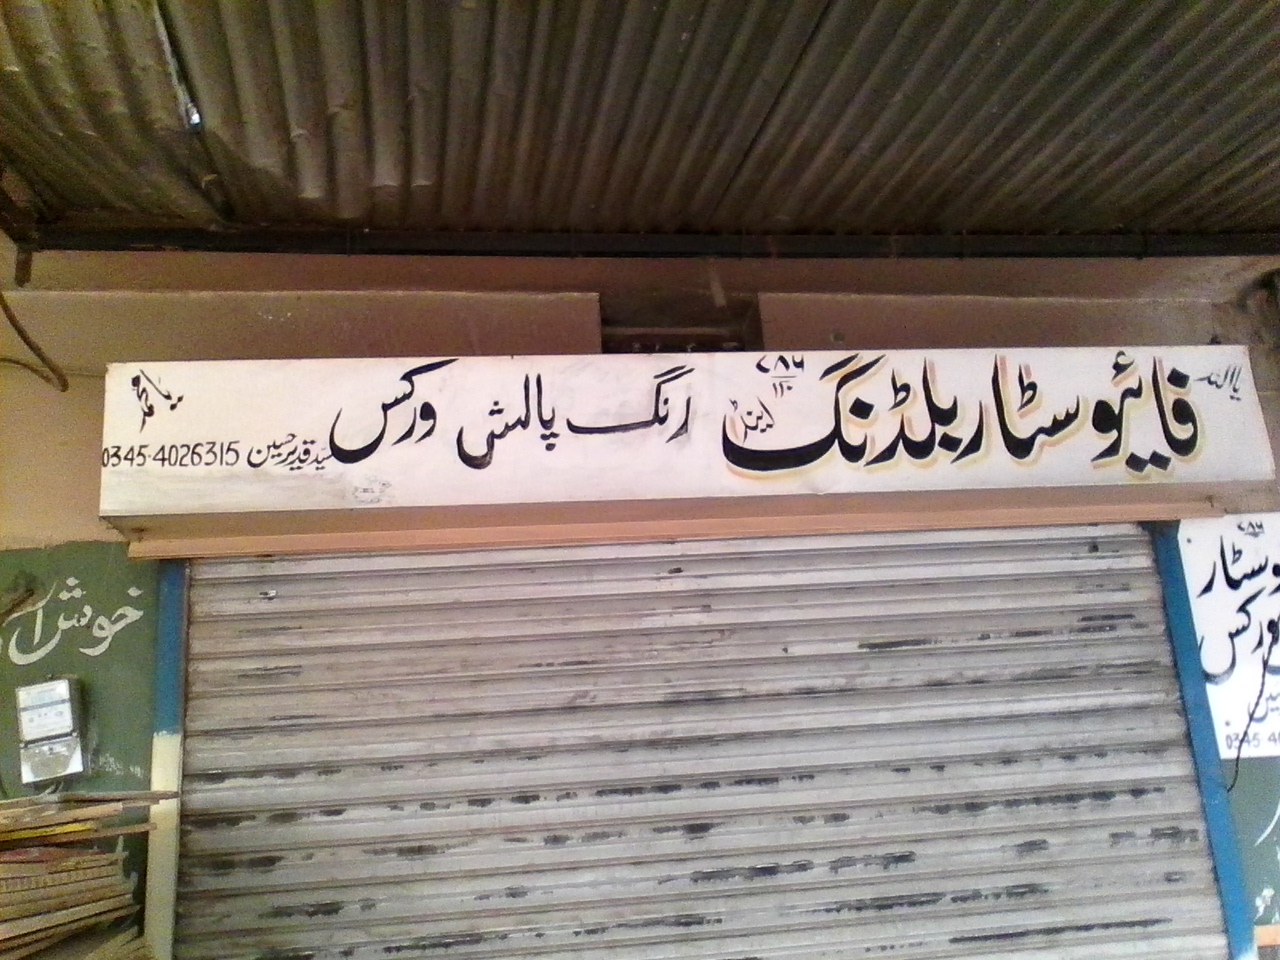 یا اللہ
۷۸۶
۱۱۰
فائیو سٹار بلڈنگ اینڈ رنگ پالش ورکس
یا محمد
سید قدیر حسین 0345-4026315
خوش آ
۷۸۶
و سٹار
ورکس
0345-40